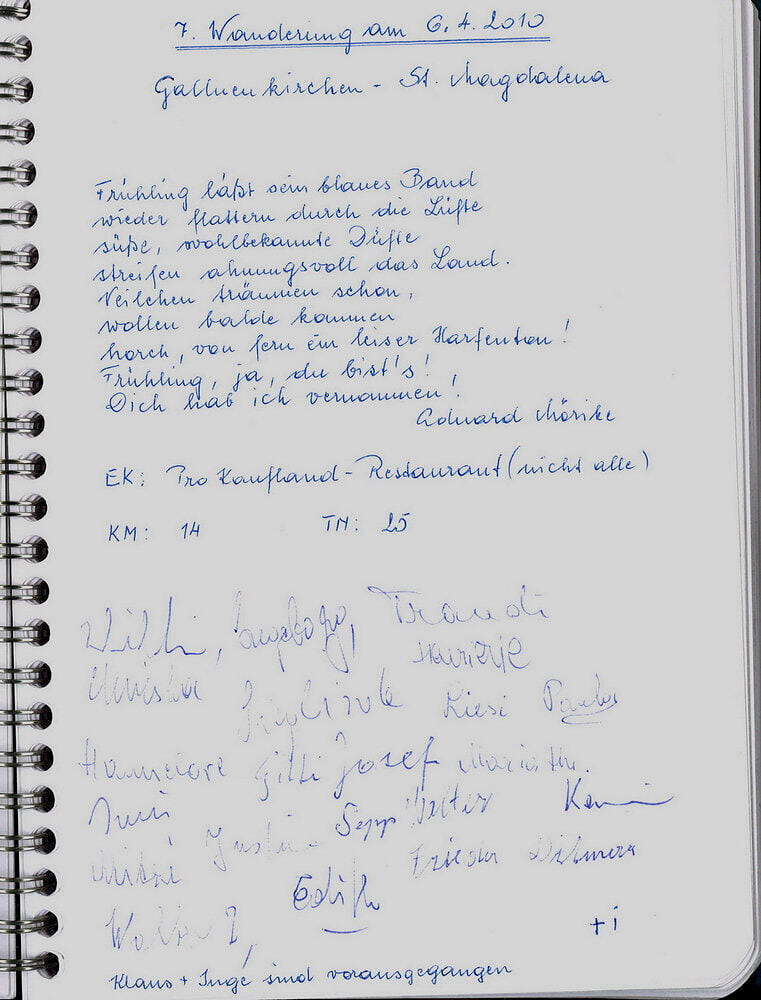 7. Wanderung am 6.4.2010
Gallneukirchen - St. Magdalena
Frühling läßt sein blaues Band
wieder flattern durch die Lüfte
süße, wohlbekannte Düfte
streifen ahnungsvoll das Land.
Veilchen träumen schon,
wollen balde kommen
horch, von fern ein leiser Harfenton!
Frühling, ja, du bist's!
Dich hab ich vernommen!
Eduard Mörike
EK: Pro Kaufland-Restaurant (nicht alle)
KM: 14 TN: 25
Willi, Traudi
Christa Liesi Paula
Hannelore Gitti Josef Maria Th.
Sepp Walter
Mitzi Frieda Dietmar
Walter Edith
+ i
Klaus + Inge sind vorausgegangen